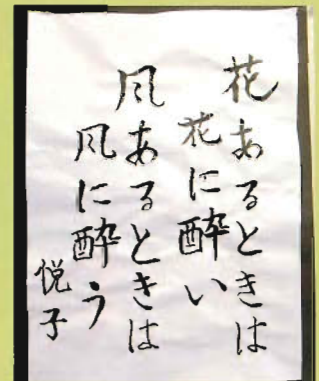 花あるときは
花に酔い
風あるときは
風に酔う
悦子